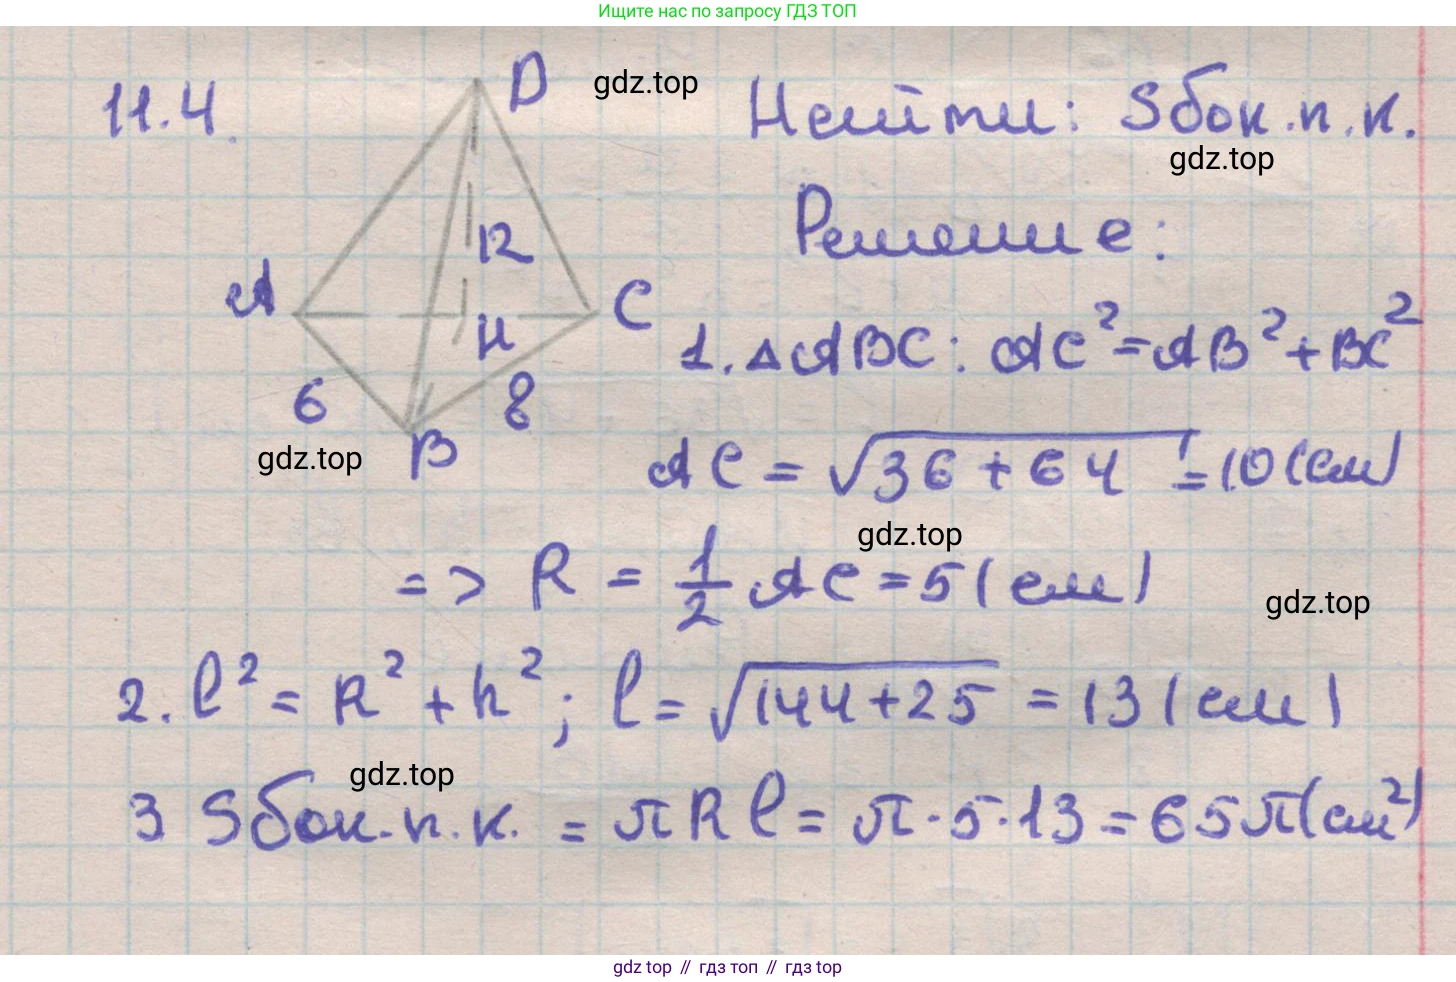 Ищите нас по запросу ГДЗ ТОП
11.4.
D
gdz.top
Найти: Sбок.п.к.
gdz.top
12
Решение:
A
C
H
1. △ABC: AC²=AB²+BC²
6
8
gdz.top
B
AC = √36+64 = 10 (см)
gdz.top
=> R = 1/2 AC = 5 (см)
gdz.top
2. l² = R² + h²; l = √144+25 = 13 (см)
gdz.top
3 Sбок.п.к. = πRl = π·5·13 = 65π(см²)
gdz top // гдз топ // гдз top